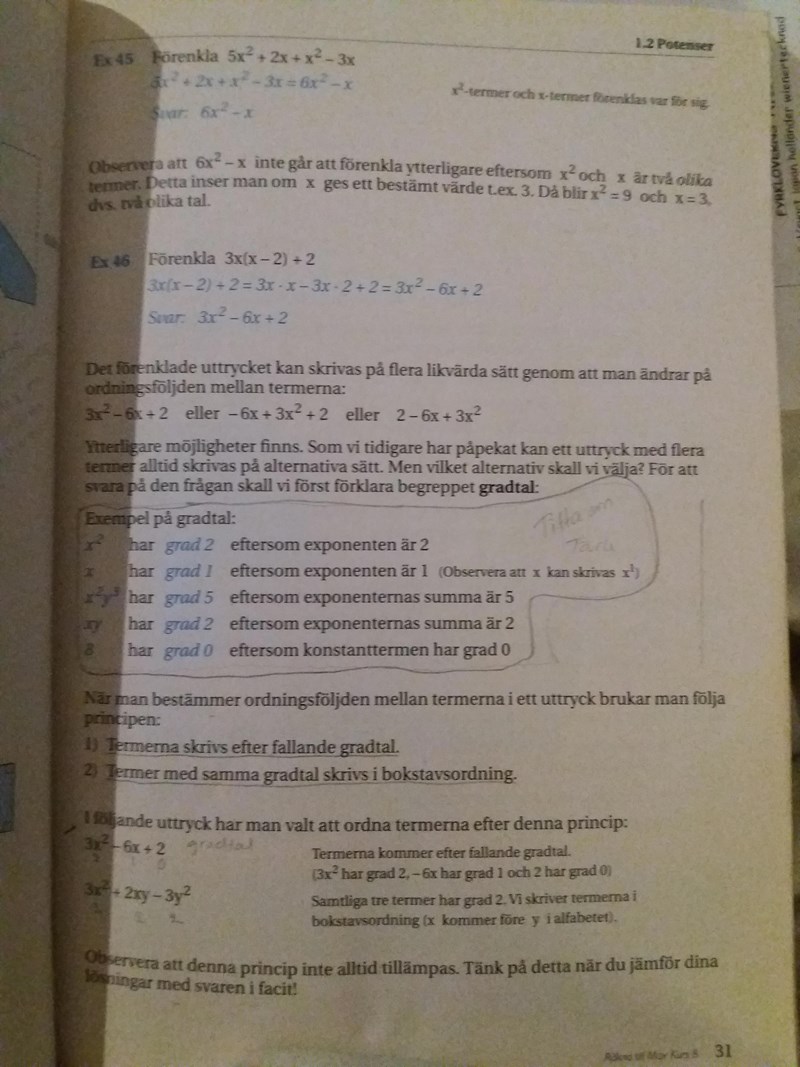 1.2 Potenser
Ex 45 Förenkla 5x² + 2x + x² – 3x
5x² + 2x + x² – 3x = 6x² – x
x²-termer och x-termer förenklas var för sig.
Svar: 6x² – x
Observera att 6x² – x inte går att förenkla ytterligare eftersom x² och x är två olika
termer. Detta inser man om x ges ett bestämt värde t.ex. 3. Då blir x² = 9 och x = 3,
dvs. två olika tal.
Ex 46 Förenkla 3x(x – 2) + 2
3x(x – 2) + 2 = 3x · x – 3x · 2 + 2 = 3x² – 6x + 2
Svar: 3x² – 6x + 2
Det förenklade uttrycket kan skrivas på flera likvärda sätt genom att man ändrar på
ordningsföljden mellan termerna:
3x² – 6x + 2 eller – 6x + 3x² + 2 eller 2 – 6x + 3x²
Ytterligare möjligheter finns. Som vi tidigare har påpekat kan ett uttryck med flera
termer alltid skrivas på alternativa sätt. Men vilket alternativ skall vi välja? För att
svara på den frågan skall vi först förklara begreppet gradtal:
Exempel på gradtal:
Titta om
x² har grad 2 eftersom exponenten är 2
x har grad 1 eftersom exponenten är 1 (Observera att x kan skrivas x¹)
x²y³ har grad 5 eftersom exponenternas summa är 5
xy har grad 2 eftersom exponenternas summa är 2
8 har grad 0 eftersom konstanttermen har grad 0
När man bestämmer ordningsföljden mellan termerna i ett uttryck brukar man följa
principen:
1) Termerna skrivs efter fallande gradtal.
2) Termer med samma gradtal skrivs i bokstavsordning.
I följande uttryck har man valt att ordna termerna efter denna princip:
3x² – 6x + 2 gradtal
Termerna kommer efter fallande gradtal.
(3x² har grad 2, – 6x har grad 1 och 2 har grad 0)
2 1 0
3x² + 2xy – 3y²
Samtliga tre termer har grad 2. Vi skriver termerna i
bokstavsordning (x kommer före y i alfabetet).
2 2 2
Observera att denna princip inte alltid tillämpas. Tänk på detta när du jämför dina
lösningar med svaren i facit!
Räkna till Max Kurs B 31